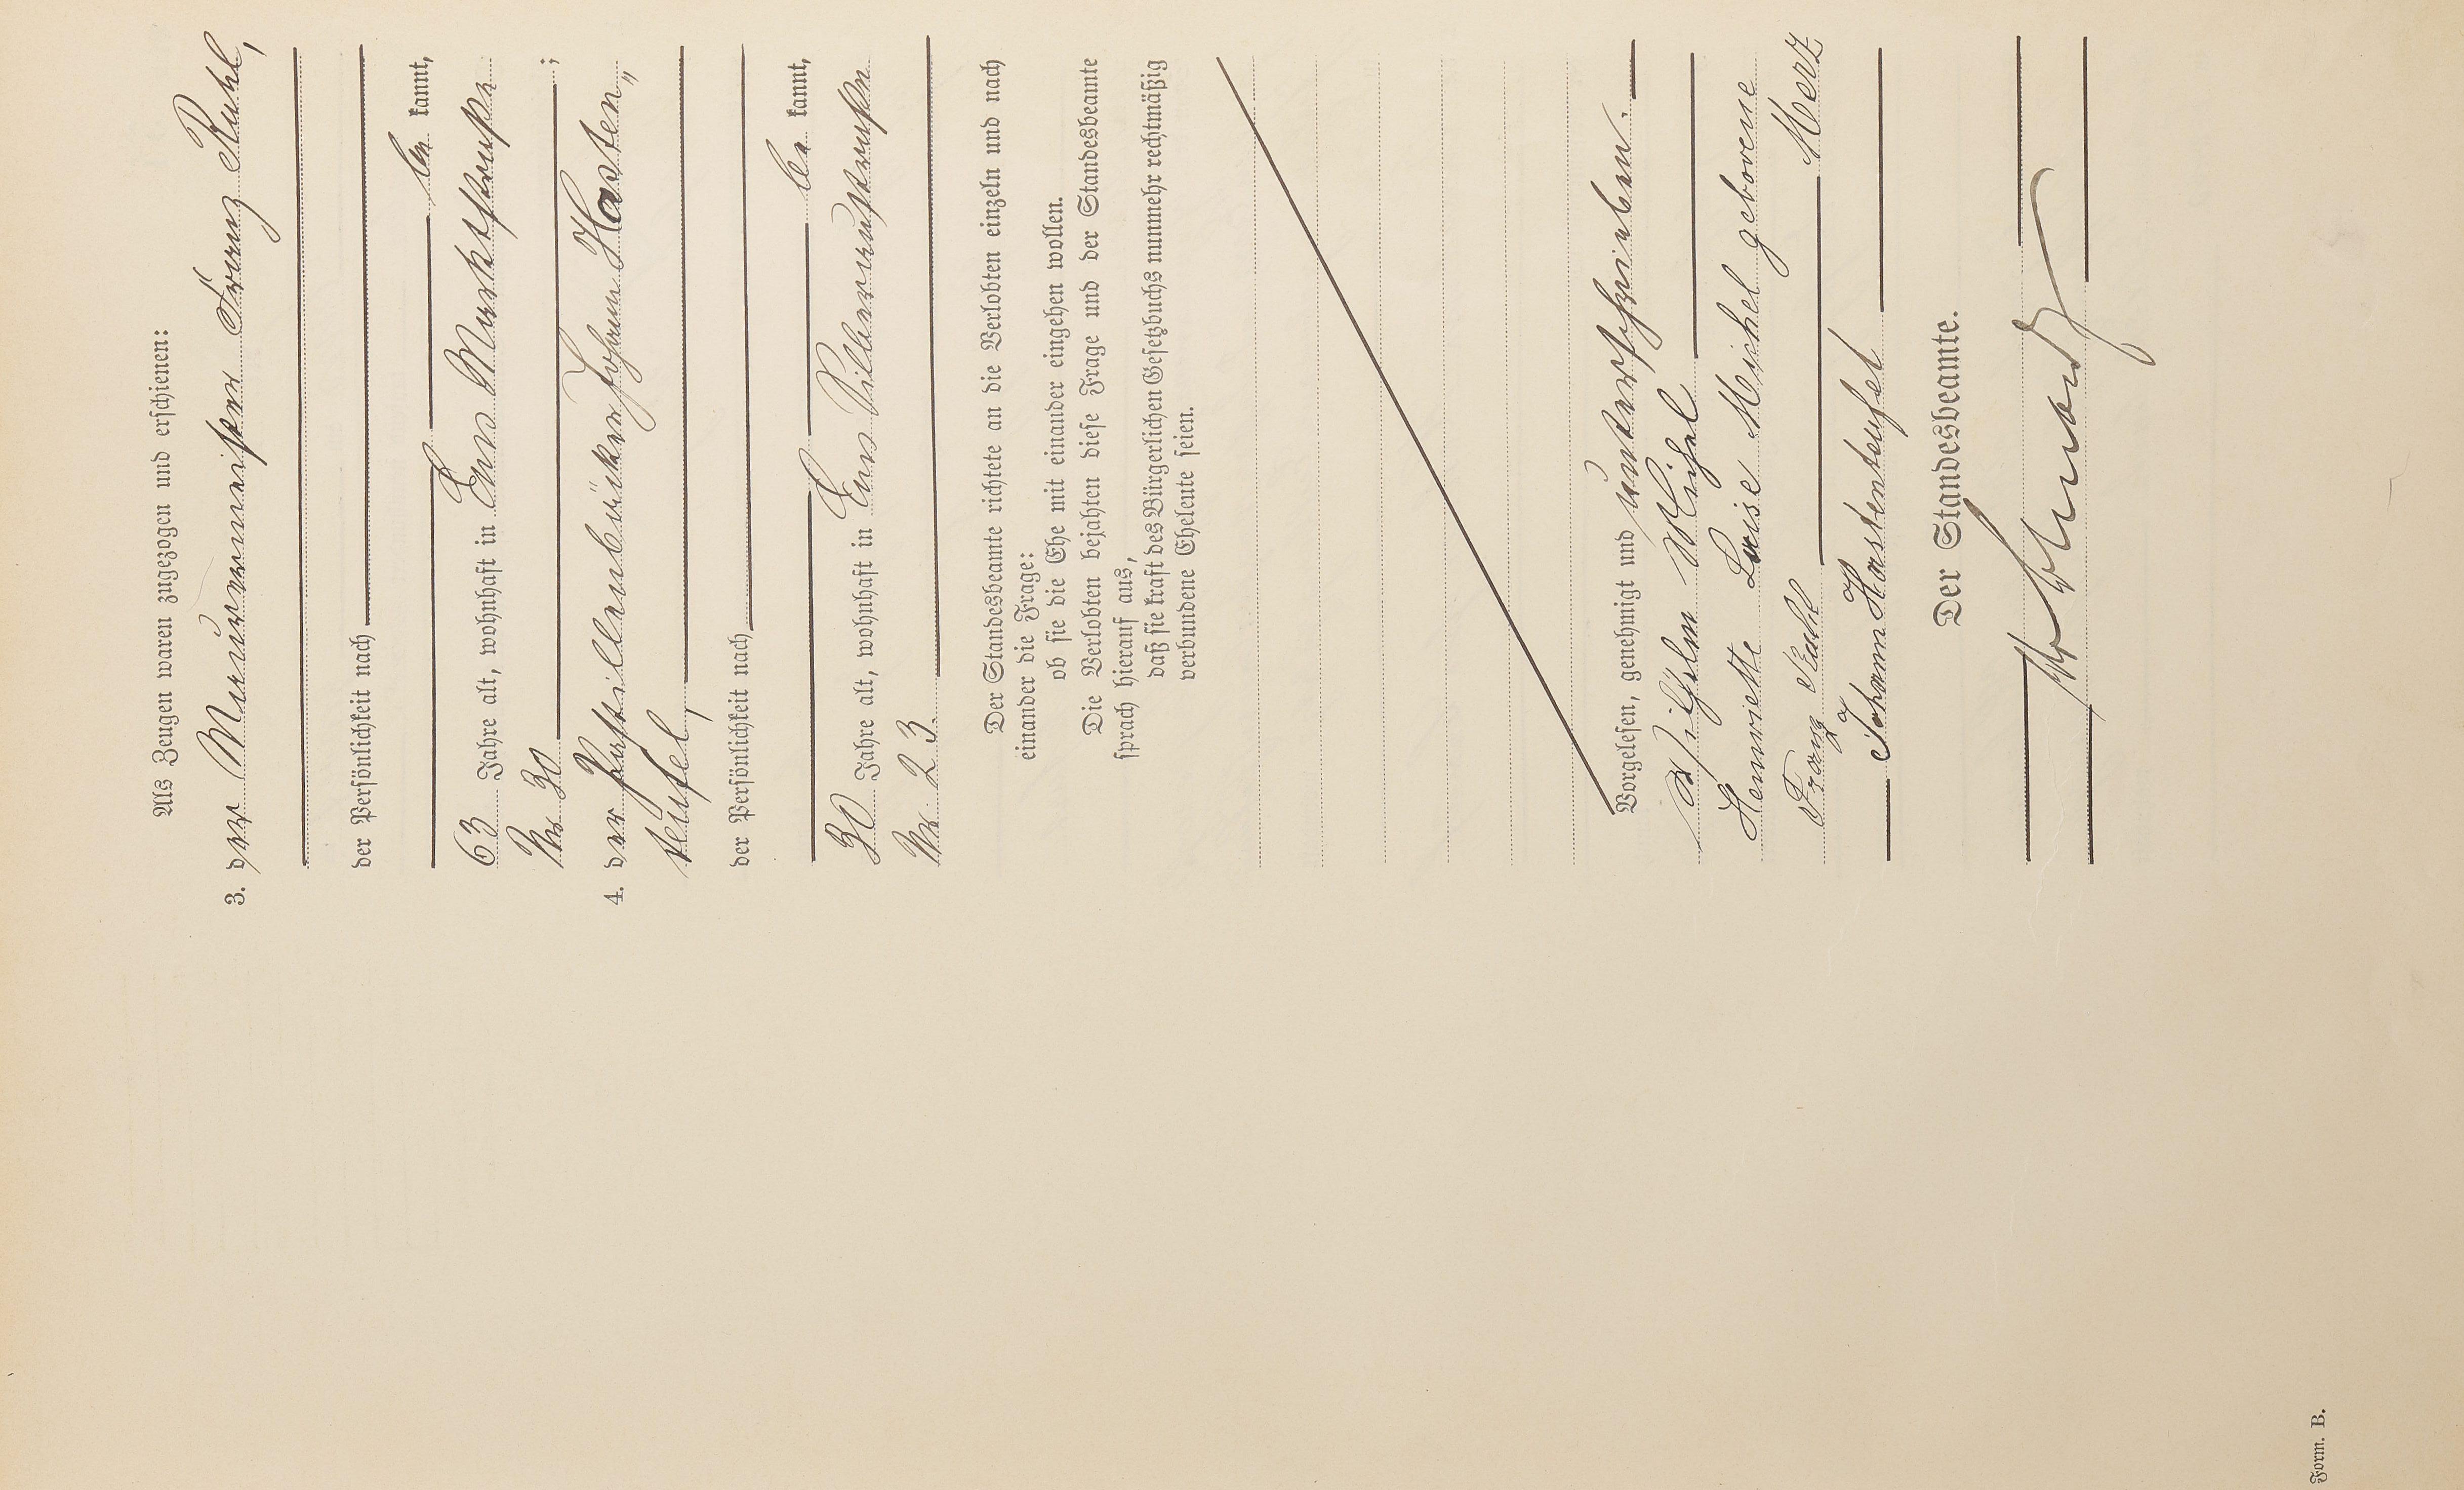 Als Zeugen waren zugezogen und erschienen:
3. der Maurermeister Franz Ruhl,
der Persönlichkeit nach
be kannt,
63 Jahre alt, wohnhaft in Ems Marktstraße
Nr 30 ;
4. der Pastillenbäcker Johann Hasten„
teufel,
der Persönlichkeit nach
be kannt,
30 Jahre alt, wohnhaft in Ems Villenaustraße
Nr. 23.
Der Standesbeamte richtete an die Verlobten einzeln und nach
einander die Frage:
ob sie die Ehe mit einander eingehen wollen.
Die Verlobten bejahten diese Frage und der Standesbeamte
sprach hierauf aus,
daß sie kraft des Bürgerlichen Gesetzbuchs nunmehr rechtmäßig
verbundene Eheleute seien.
Vorgelesen, genehmigt und unterschrieben.
Wilhelm Michel
Henriette Luise Michel geborene
Merz
Franz Ruhl
Johann Hastenteufel
Der Standesbeamte.
Form. B.